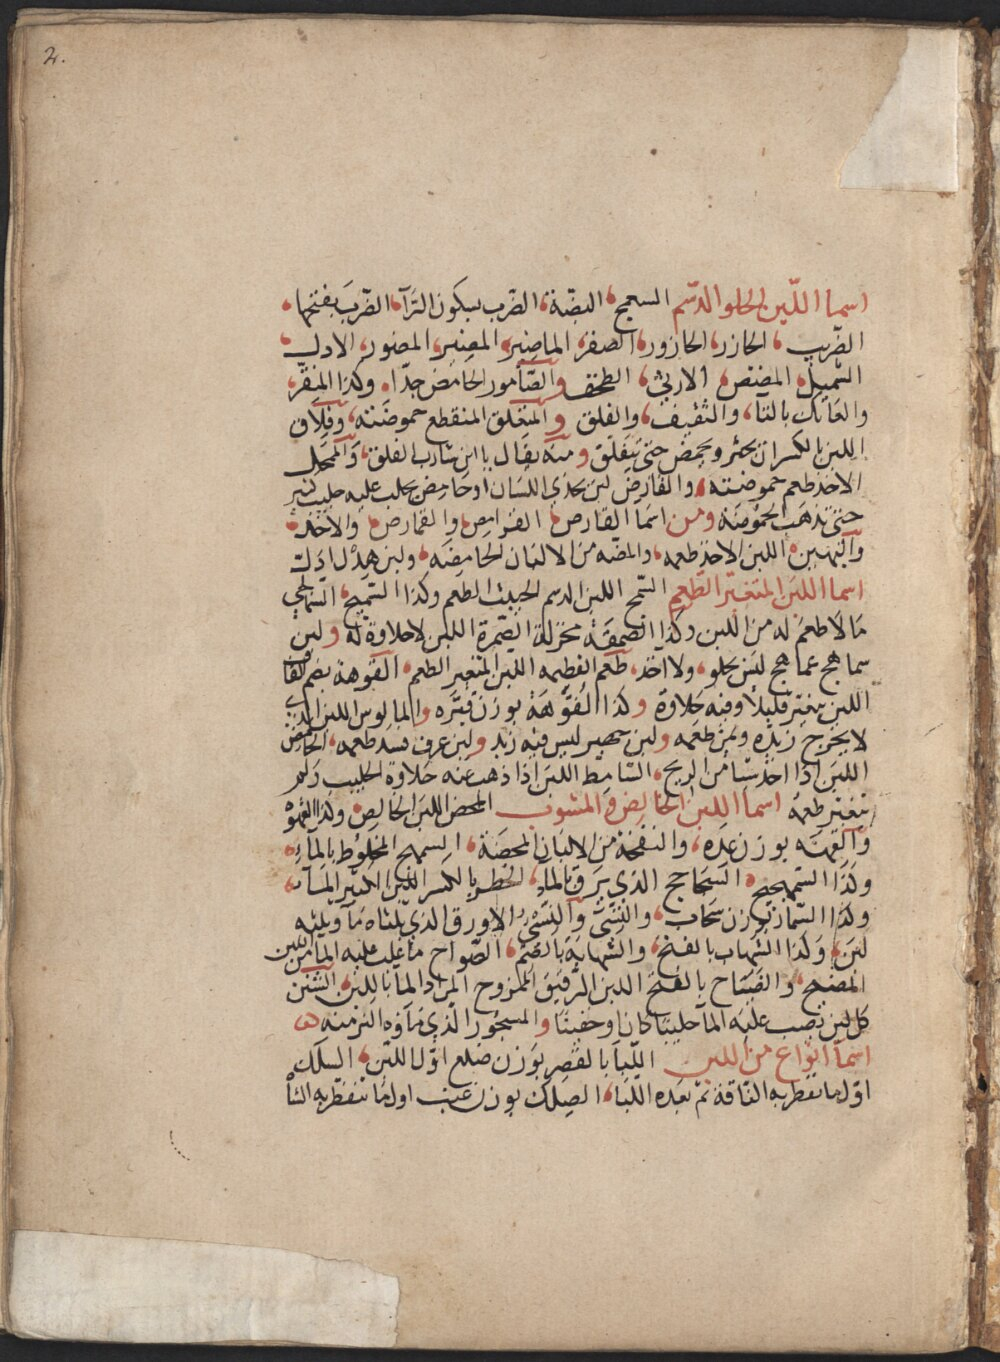 2.
اسما اللّبن الحلو الدّسم السعج، البضّة، الضّرب بسكون الرّآ، الضّرَب بفتحها،
الضّريب، الحازر، الحازور، الصقر، الماضر، المضير، المضور، الادل
الثميل، المصنقص، الارنى، الطخف، والصّامور الحامض جدّا، وكذا الممقر،
والعاتك بالتآ، والثقيف، والفلق و المتغلق المنقطع حموضَته، وفلاق
اللبن بالكسر ان يخثر ويحمض حتى يتفلّق ومنه يقال يا ابن شارب الفلق، والممحّل
الاخذ طعم حموضته، والقارص لبن يحذي اللسان او حامض يحلب عليه حليب كثير
حتى تذهب الحموضَة ومن اسما القارص، القرامص والقمارص والاخذ،
اللبن الاخذ طعمه، والمضه من الالبان الحامضه، ولبن هدل ادل
اسما اللبن المتغيّر الطّعم السّمج اللبن الدسم الخبيث الطعم وكذا السّميج، السملج
مَا لا طعمَ له من اللبن وكذا الصمقَة محركة الصّمرة اللبن لا حلاوة له ولبن
سماهج عماهج ليس بحلو، ولا اخذ، طعم الفطيمه اللبن المتغير الطعم، القوهة بضم القاف
اللبن يتغيّر قليلا وفيه حلاوة وكذا القُوّهَة بوزن قبّره والمالوس اللبن الذي
لا يخرج زبده ويمرّ طعمه ولبن سمهير ليس فيه زبد ولبن عرق فسد طعمه، الخامط
اللبن اذا اخذ شيئا من الريح، السّامط اللبن اذا ذهب عنه حَلاوة الحليب ولم
يتغيّر طعمه اسما اللبن الخالص والمشوب المحض اللبن الخالص وكذا القهوه
والقهَه بوزن عِدَه، والنفخة من الالبان المحضَة، السمهج المخلوط بالمآء
وكَذا السّمهجيج، السّجاجج الذي يرق بالماء، الخضر بالكسر اللبن الكثير المآء،
وكذا السّمار بوزن سحَاب، والنّسئ والنَسْئ، الاورق الذي ثلثاه مآ وثلثه
لبن، وكَذا الشّهاب بالفتح، والشّهابَة بالضّم، الصّواح ما غلب عليه المآ من اللبن
المضيح، والضّيَاح بالفتح اللبن الرّقيق الممزوج المزاد المآ باللبن الشنن
كل لبن يصب علَيْه المآ حليبًا كان او حقينًا والمسجُور الّذي مآؤه اكثر منه
اسمآ انوَاع من اللبن اللّبأ بالقصر بوَزن ضلع اوّل اللبن، السلك
اوّل ما تفطر به النّاقة ثم بَعده اللّبَا، الصلك بوزن عنب اول مَا تتفطّر به الشاة